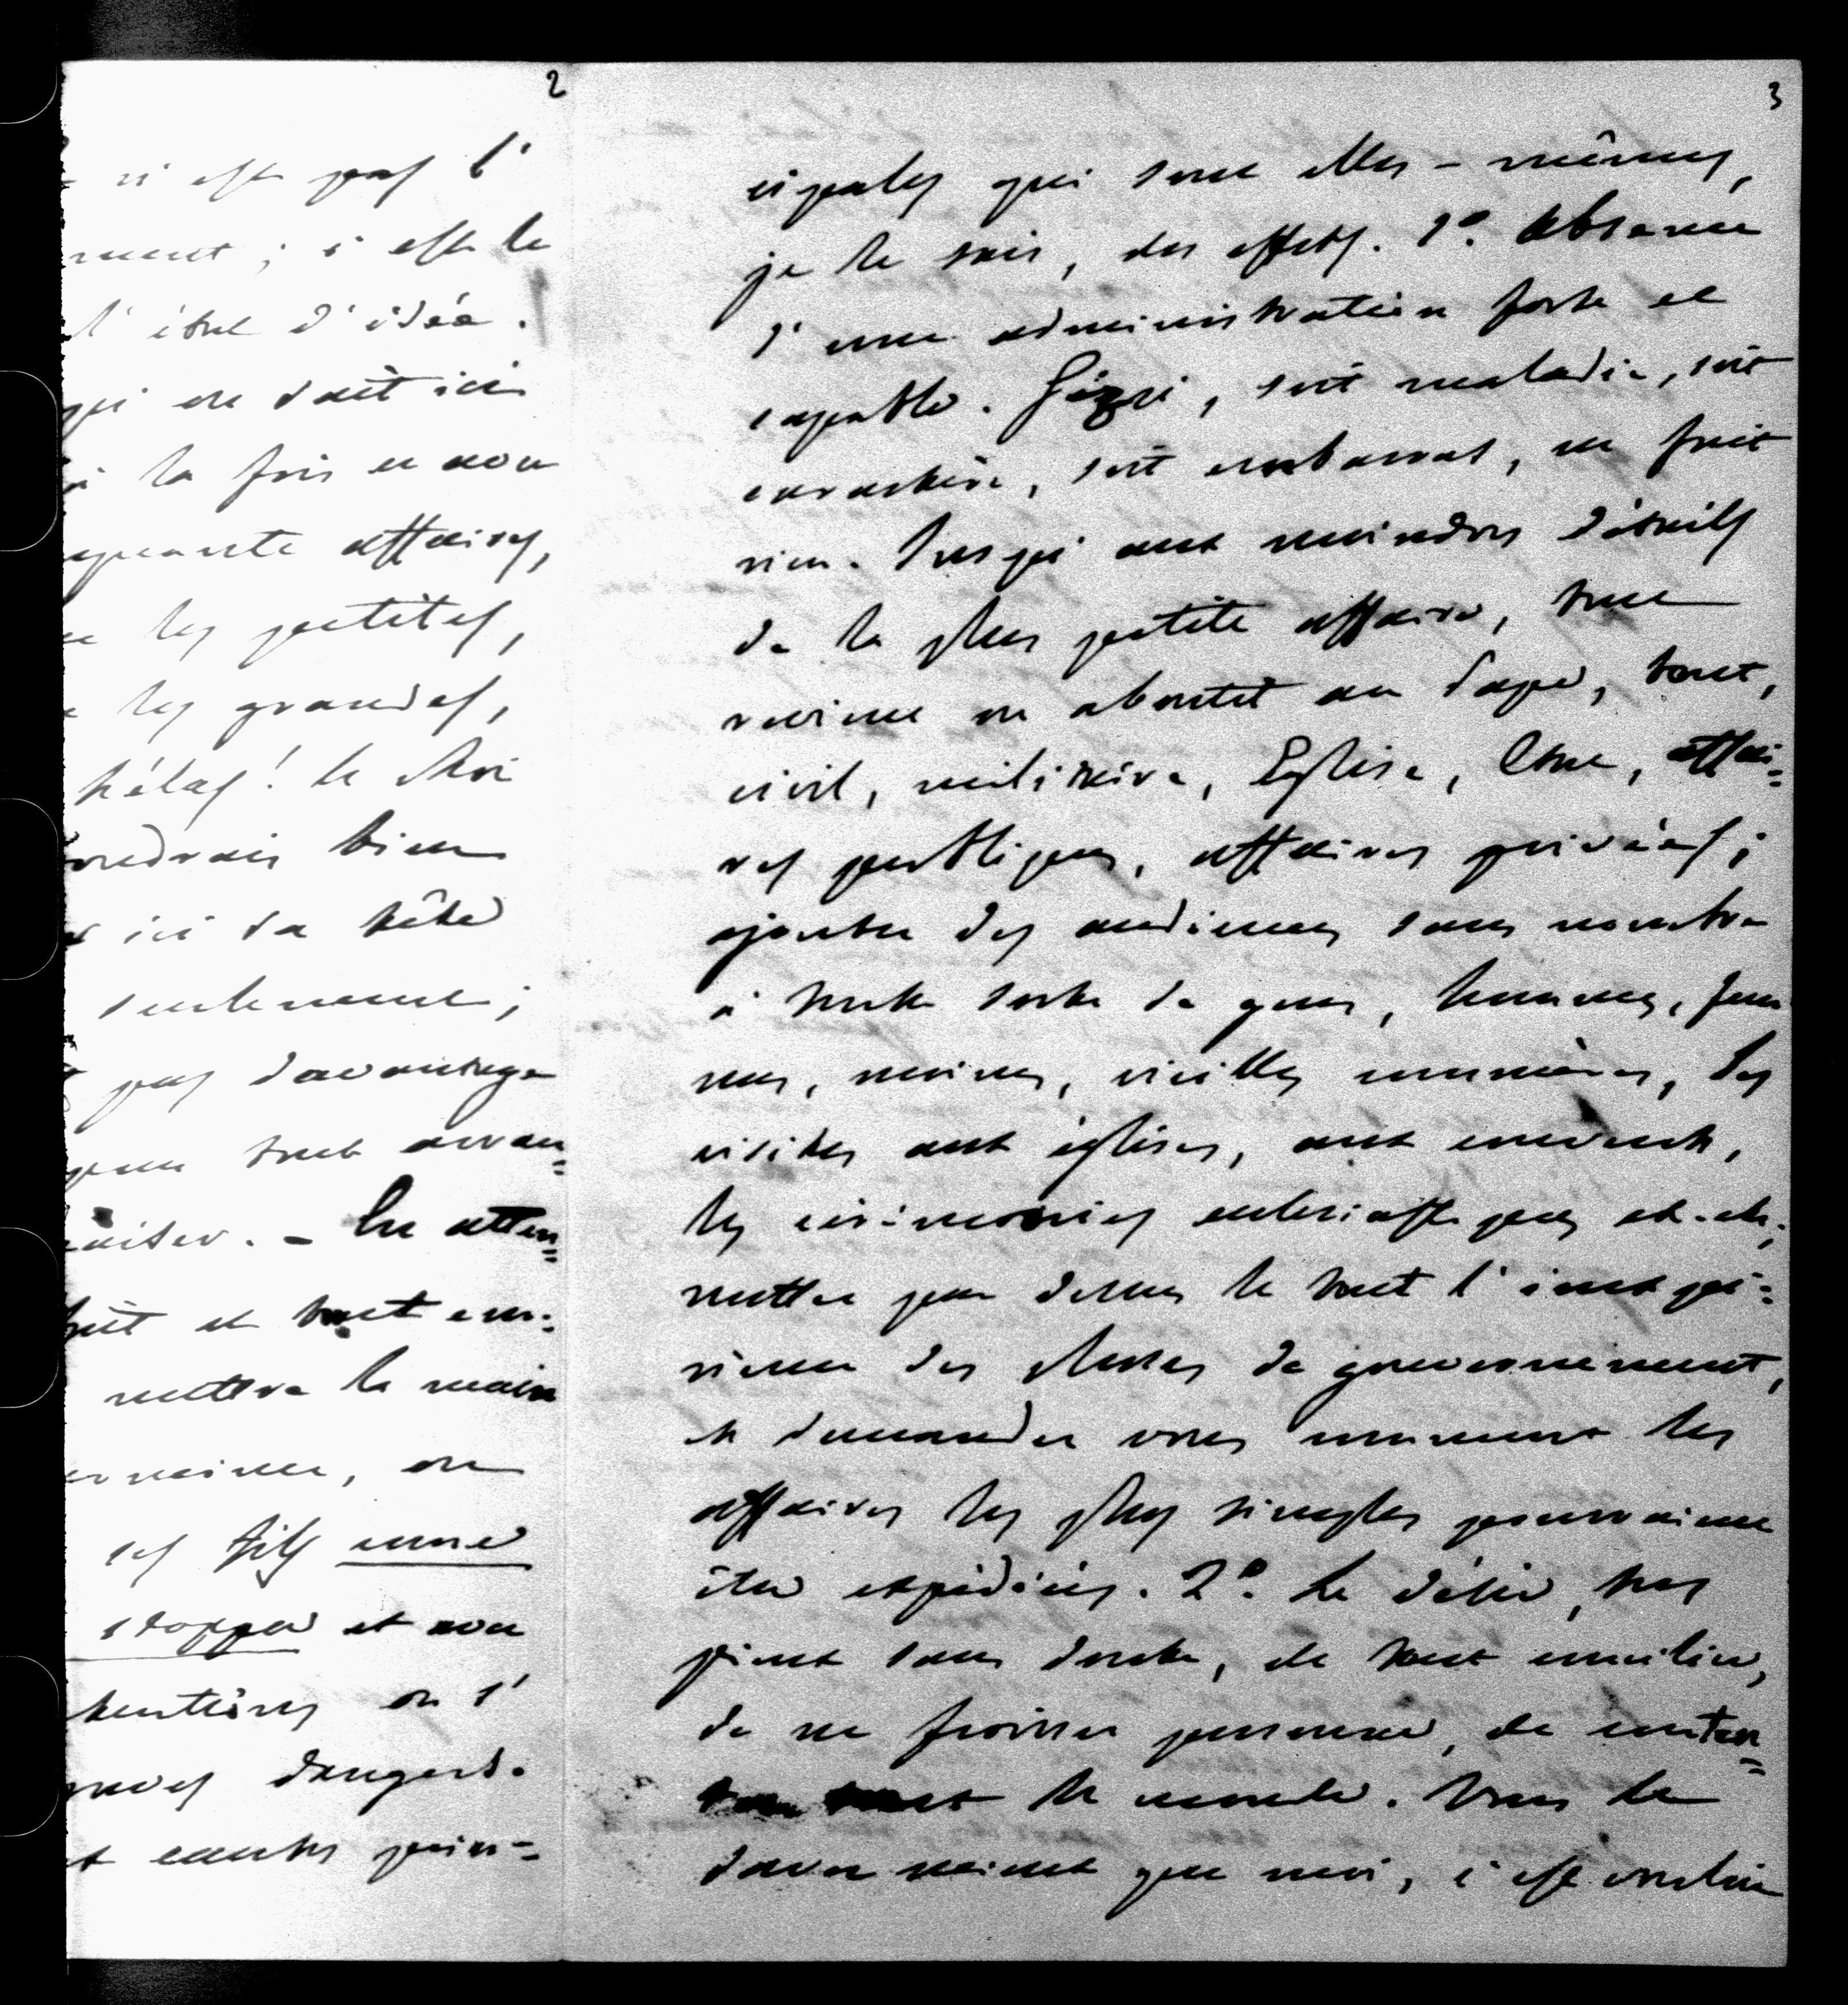 2
n'est pas l'
ment ; c'est le
l'état d'idée.
qui en doit ici
à la fois en avoir
affaires,
les petites,
les grandes,
hélas ! le
voudrais bien
ici sa tête
seulement ;
pas davantage
pour tout arran=
. – En atten=
et tout en=
mettre la main
, on
ses fils une
et avoir
on s'
dangers.
et causes prin=
3
cipales qui sont elles-mêmes,
je le sais, des effets. 1º. Absence
d'une administration forte et
capable. Gizzi, soit maladie, soit
caractère, soit embarras, ne fait
rien. Jusqu'aux moindres détails
de la plus petite affaire, tout
revient ou aboutit au Pape, tout,
civil, militaire, Eglise, Etat, affai=
res publiques, affaires privées ;
ajoutez des audiences sans nombre
à toute sorte de gens, hommes, fem
mes, moines, vieilles commères, des
visites aux églises, aux couvents,
les cérémonies ecclésiastiques etc. etc.,
mettez par dessus le tout l'inexpé=
rience des choses de gouvernement,
et demandez vous comment les
affaires les plus simples pourraient
être expédiées. 2º. Le désir, très
pieux sans doute, de tout concilier,
de ne froisser personne, de conten=
ter tout le monde. Vous le
savez mieux que moi, c'est vouloir